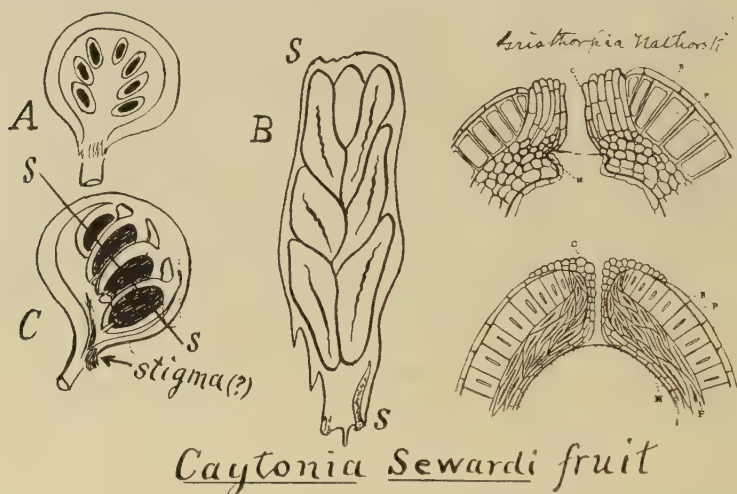 A
S
C
S
stigma(?)
S
B
S
Gristhorpia Nathorsti
C
B
P
M
C
B
P
M
F
I
Caytonia Sewardi fruit